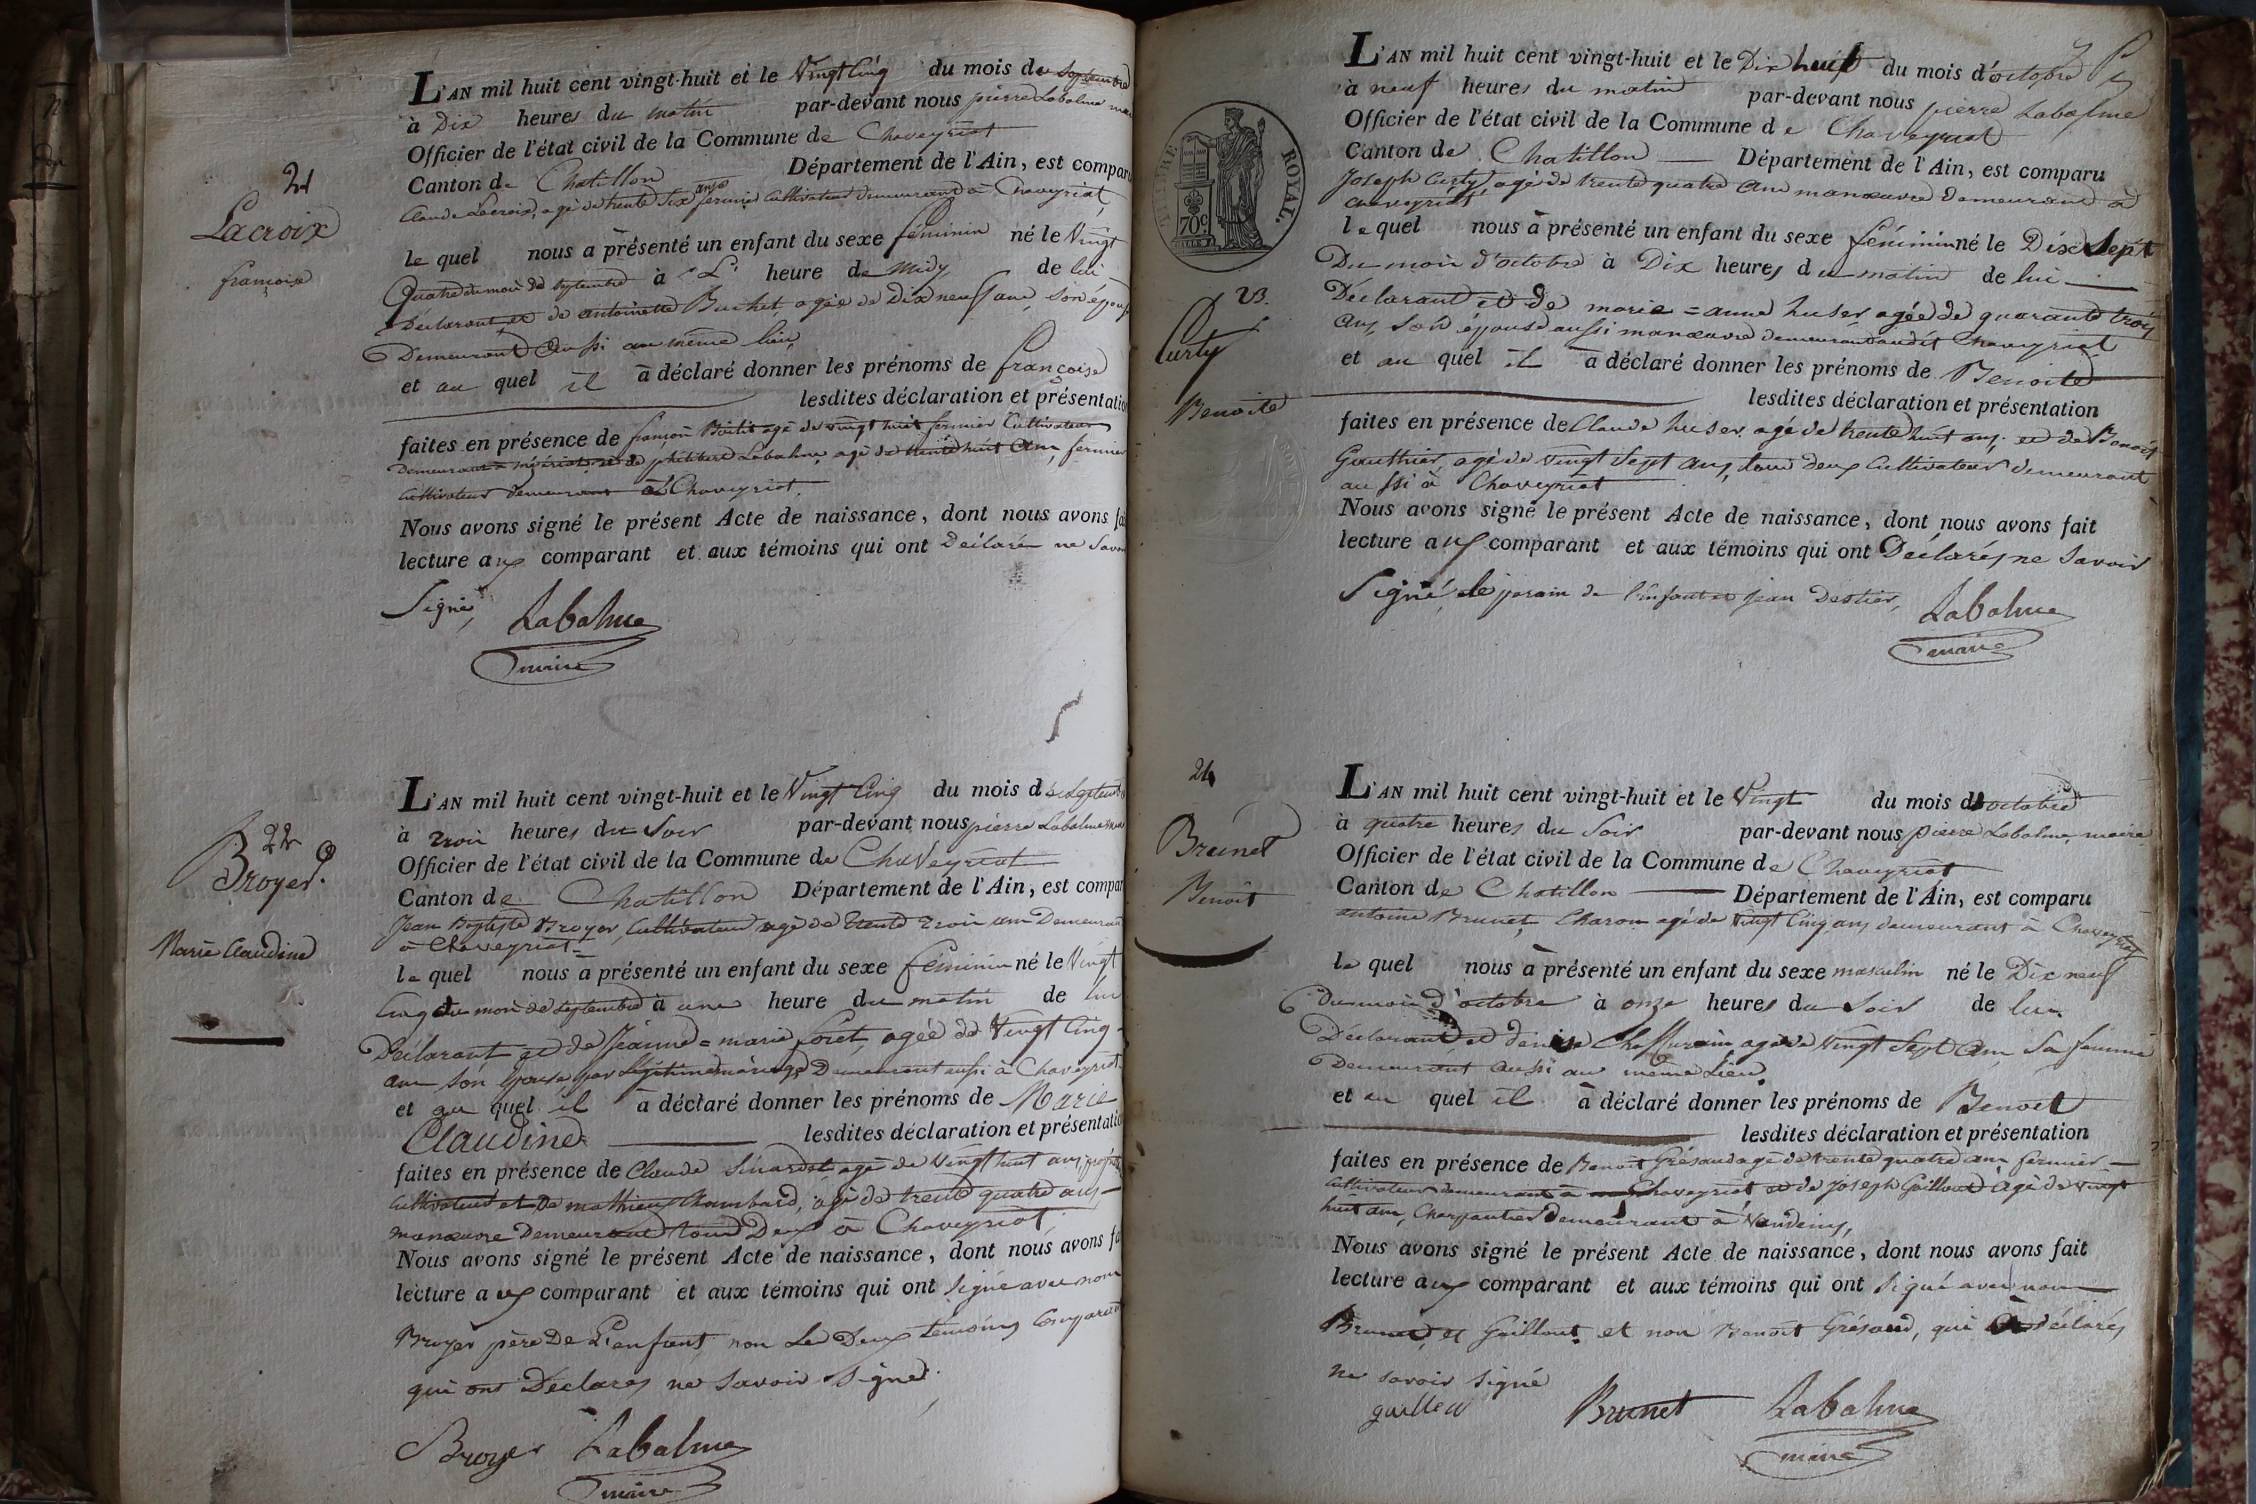 21
Lacroix
françoise
L'AN mil huit cent vingt-huit et le Vingt Cinq du mois de Septembre
à Dix heures du matin par-devant nous pierre Labalme
Officier de l'état civil de la Commune de Chaveyriat
Canton de Chatillon Département de l'Ain, est comparu
Claude Lacroix, agé de trente Six ans fermier Cultivateur demeurant à Chaveyriat,
le quel nous a présenté un enfant du sexe féminin né le Vingt
Quatre du mois de septembre à heure de midy de lui
Déclarant, et de antoinette Buchet, agée de Dix neuf ans, son épouse
Demeurant Aussi au même lieu
et au quel il a déclaré donner les prénoms de françoise
lesdites déclaration et présentation
faites en présence de françois agé de vingt huit fermier Cultivateur
Demeurant à et de philibert Labalme, agé de trente huit Ans, fermier
Cultivateur demeurant à Chaveyriat.
Nous avons signé le présent Acte de naissance, dont nous avons fait
lecture aux comparant et aux témoins qui ont Déclarés ne Savoir
Signé, Labalme
maire
22
Broyer
Marie Claudine
L'AN mil huit cent vingt-huit et le Vingt Cinq du mois de Septembre
à trois heures du Soir par-devant nous pierre Labalme maire
Officier de l'état civil de la Commune de Chaveyriat
Canton de Chatillon Département de l'Ain, est comparu
Jean Baptiste Broyer, Cultivateur agé de trente trois ans Demeurant
à Chaveyriat =
le quel nous a présenté un enfant du sexe féminin né le Vingt
Cinq du mois de septembre à une heure du matin de lui
Déclarant et de Jeanne = marie foret, agée de Vingt Cinq
ans son épouse par légitime mariage Demeurant aussi à Chaveyriat
et au quel il a déclaré donner les prénoms de Marie
Claudine lesdites déclaration et présentation
faites en présence de Claude agé de Vingt huit ans,
Cultivateur et De mathieu Chambard, agé de trente quatre ans
manœuvre Demeurant tous Deux à Chaveyriat,
Nous avons signé le présent Acte de naissance, dont nous avons fait
lecture aux comparant et aux témoins qui ont signé avec nous
Broyer père De L'enfant, non Le Deux témoins Comparant
qui ont Déclarés ne Savoir Signé.
Broyer Labalme
maire
TIMBRE ROYAL.
70c.
23.
Curty
Benoite
L'AN mil huit cent vingt-huit et le Dix huit du mois d'octobre
à neuf heures du matin par-devant nous pierre Labalme
Officier de l'état civil de la Commune de Chaveyriat
Canton de Chatillon Département de l'Ain, est comparu
Joseph Curty, agé de trente quatre Ans manœuvre Demeurant à
Chaveyriat
le quel nous a présenté un enfant du sexe féminin né le Dix Sept
Du mois d'octobre à Dix heures du matin de lui
Déclarant et de marie = anne huser agée de quarante trois
ans, son épouse aussi manœuvre demeurant audit Chaveyriat
et au quel il a déclaré donner les prénoms de Benoite
lesdites déclaration et présentation
faites en présence de Claude huser agé de trente huit ans, et de Benoit
Gauthier, agé de vingt Sept ans, tous deux Cultivateur demeurant
aussi à Chaveyriat
Nous avons signé le présent Acte de naissance, dont nous avons fait
lecture aux comparant et aux témoins qui ont Déclarés ne Savoir
Signé, le parain de l'enfant et jean Destier, Labalme
maire
24
Brunet
Benoit
L'AN mil huit cent vingt-huit et le Vingt du mois d'octobre
à quatre heures du Soir par-devant nous pierre Labalme, maire
Officier de l'état civil de la Commune de Chaveyriat
Canton de Chatillon Département de l'Ain, est comparu
antoine Brunet, Charon agé de vingt Cinq ans demeurant à Chaveyriat
le quel nous a présenté un enfant du sexe masculin né le Dix neuf
Du mois d'octobre à onze heures du Soir de lui
Déclarant et denise agée de Vingt Sept Ans Sa femme
Demeurant aussi au même Lieu
et au quel il a déclaré donner les prénoms de Benoit
lesdites déclaration et présentation
faites en présence de Benoit Grésaud agé de trente quatre ans fermier
Cultivateur demeurant à Chaveyriat et de Joseph Gaillout Agé de vingt
huit ans, Charpantier demeurant à Vandeins,
Nous avons signé le présent Acte de naissance, dont nous avons fait
lecture aux comparant et aux témoins qui ont Signé avec nous
Brunet, et Gaillout et non Benoit Grésaud, qui a déclarés
ne savoir signé
Brunet Labalme
maire